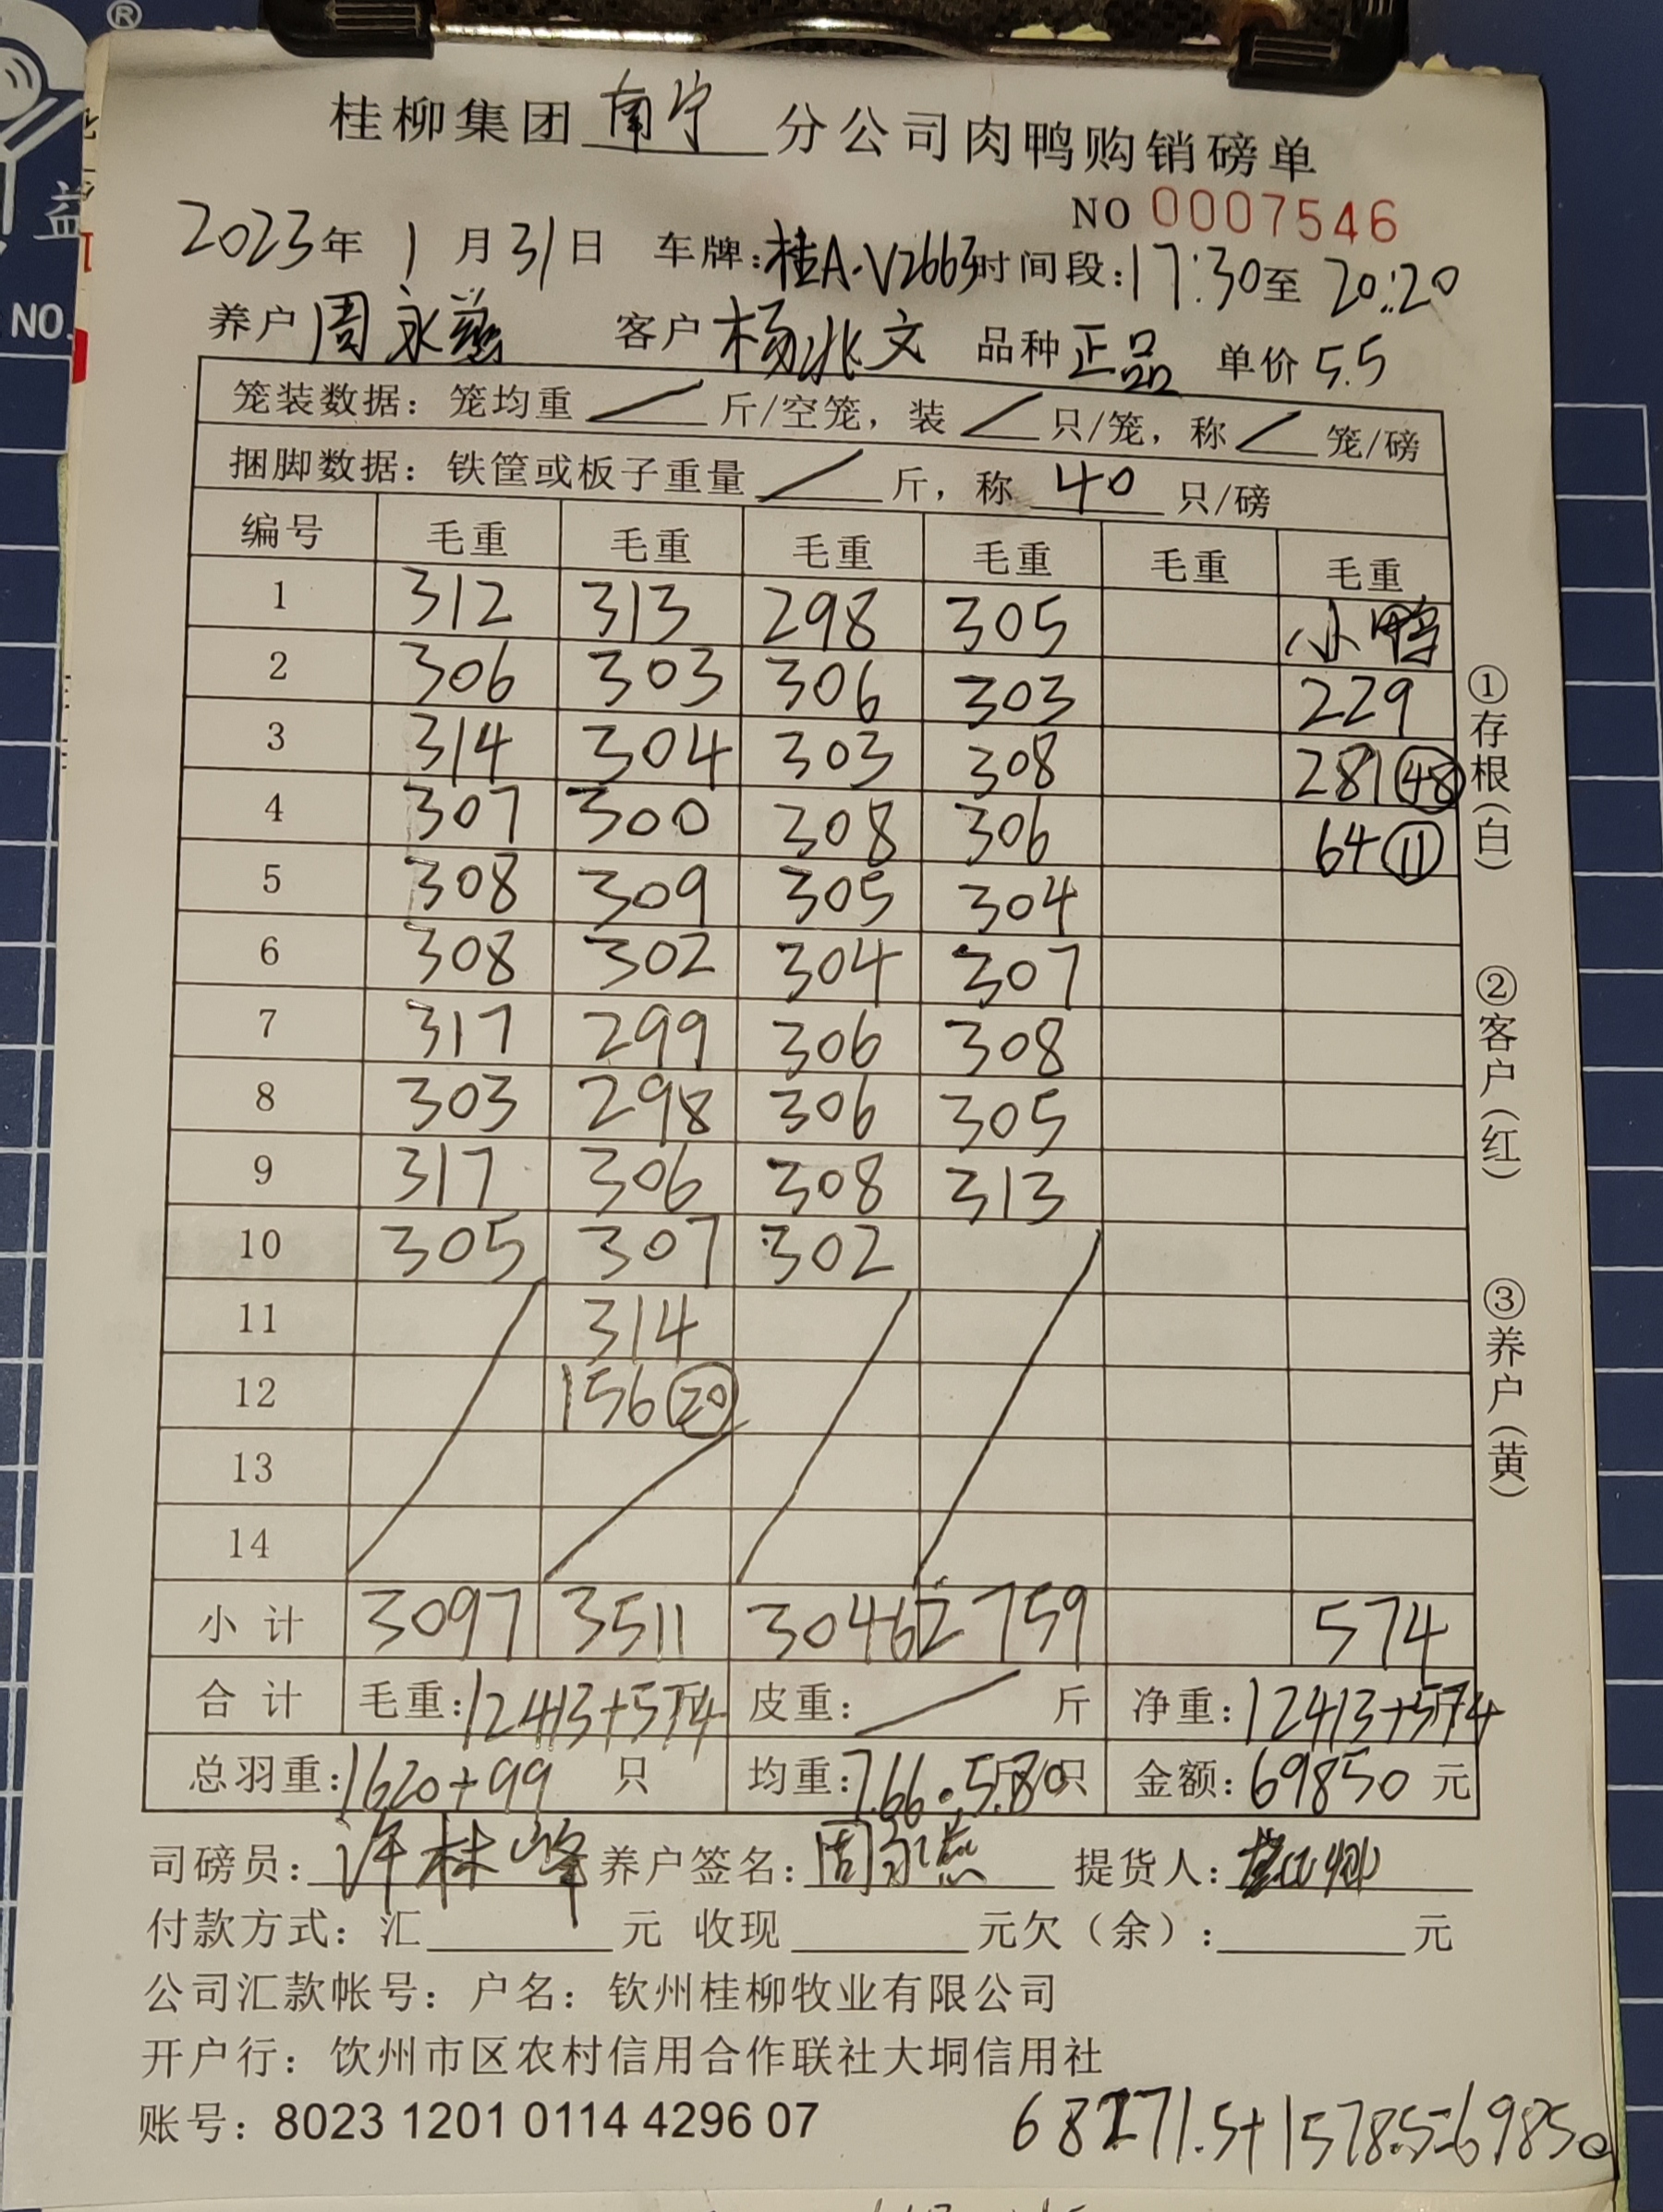 桂柳集团南宁分公司肉鸭购销磅单
NO 0007546
2023年1月31日 车牌:桂A·V2663 时间段:17:30至20:20
养户 周永燕 客户 杨兆文 品种 正品 单价 5.5
笼装数据:笼均重 / 斤/空笼,装 / 只/笼,称 / 笼/磅
捆脚数据:铁筐或板子重量 / 斤,称 40 只/磅
编号 毛重 毛重 毛重 毛重 毛重 毛重
1 312 313 298 305 小鸭
2 306 303 306 303 229
3 314 304 303 308 281 48
4 307 300 308 306 64 11
5 308 309 305 304
6 308 302 304 307
7 317 299 306 308
8 303 298 306 305
9 317 306 308 313
10 305 307 302
11 314
12 156 20
13
14
小计 3097 3511 3046 2759 574
合计 毛重:12413+574 皮重: / 斤 净重:12413+574
总羽重:1620+99 只 均重:7.66 5.80 只 金额:69850 元
司磅员:许林峰 养户签名:周永燕 提货人:
付款方式:汇 元 收现 元欠(余): 元
公司汇款帐号:户名:钦州桂柳牧业有限公司
开户行:饮州市区农村信用合作联社大垌信用社
账号:8023 1201 0114 4296 07
68271.5+1578.5=69850
①存根(白)
②客户(红)
③养户(黄)
益
NO.
®